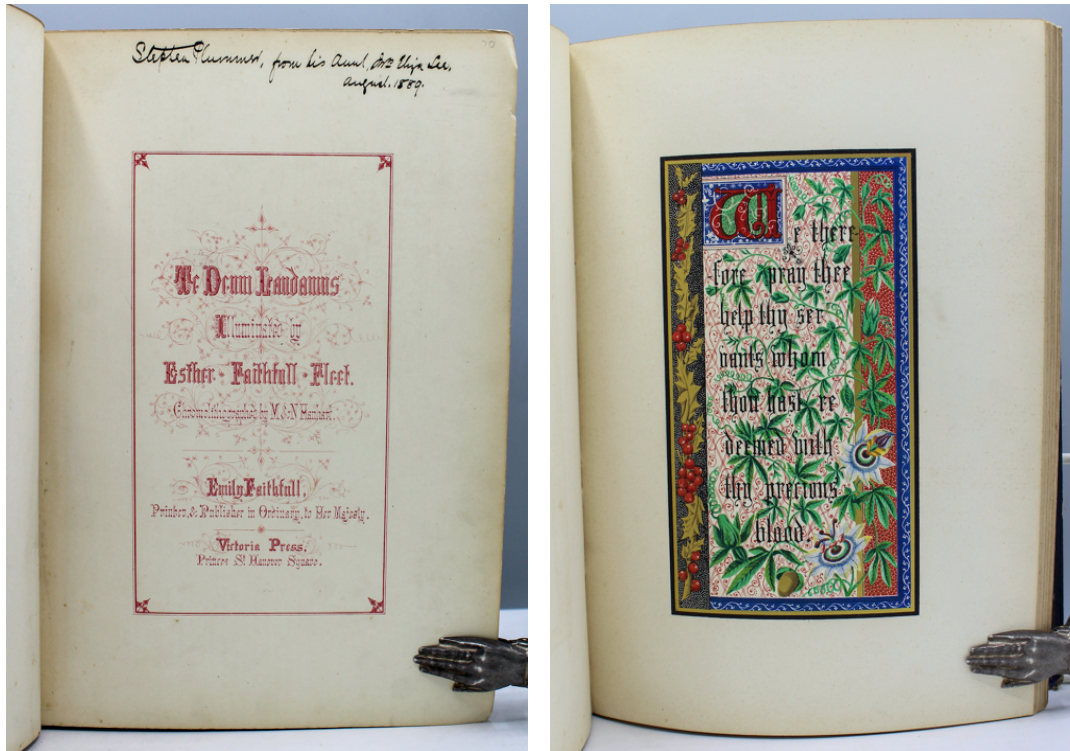 Stephen Plummer, from his Aunt, Mrs Eliza Lee,
August. 1889.
Te Deum Laudamus
Illuminated by
Esther Faithfull Fleet.
Chromolithographed by M. & N Hanhart.
Emily Faithfull,
Printer, & Publisher in Ordinary, to Her Majesty.
Victoria Press,
Princes St. Hanover Square.
We there
fore pray thee
help thy ser
vants whom
thou hast re
deemed with
thy precious
blood.